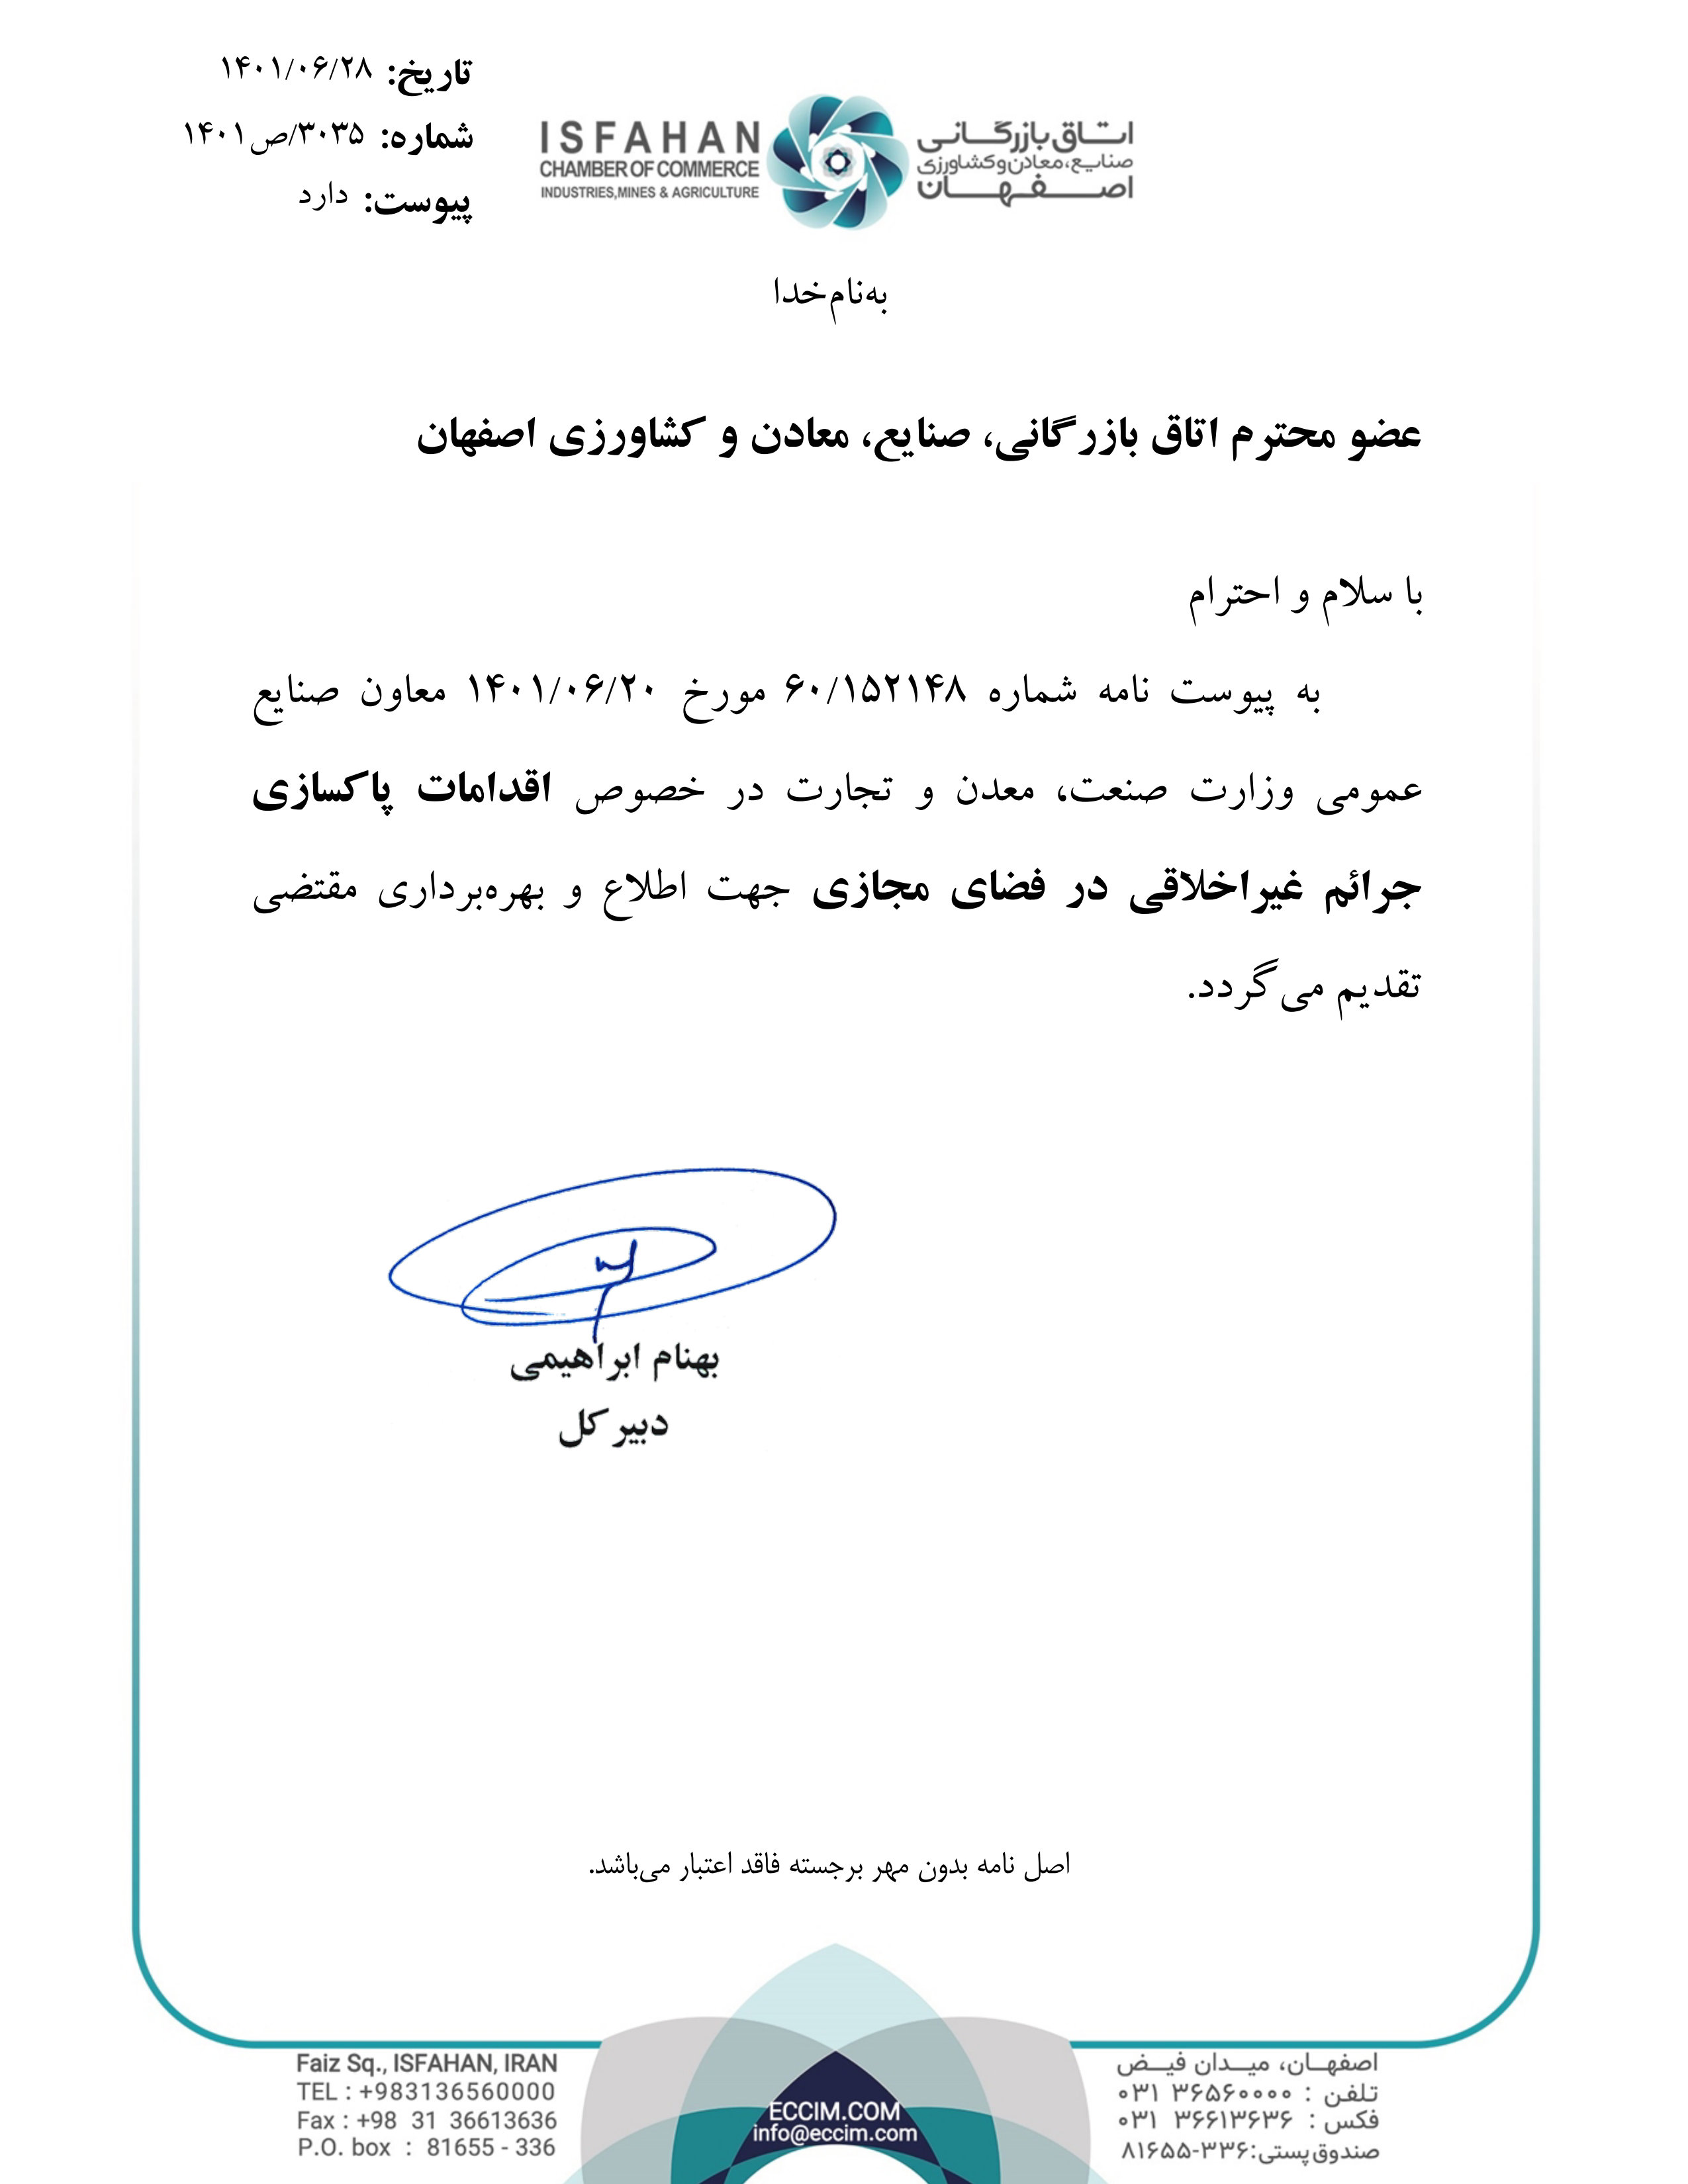 تاریخ: ۱۴۰۱/۰۶/۲۸
شماره: ۳۰۳۵/ص۱۴۰۱
پیوست: دارد
ISFAHAN
CHAMBER OF COMMERCE
INDUSTRIES,MINES & AGRICULTURE
اتـاق‌بازرگـانـی
صنایع،معادن‌وکشاورزی
اصــفــهــان
به‌نام‌خدا
عضو محترم اتاق بازرگانی، صنایع، معادن و کشاورزی اصفهان
با سلام و احترام
به پیوست نامه شماره ۶۰/۱۵۲۱۴۸ مورخ ۱۴۰۱/۰۶/۲۰ معاون صنایع
عمومی وزارت صنعت، معدن و تجارت در خصوص اقدامات پاکسازی
جرائم غیراخلاقی در فضای مجازی جهت اطلاع و بهره‌برداری مقتضی
تقدیم می‌گردد.
بهنام ابراهیمی
دبیر کل
اصل نامه بدون مهر برجسته فاقد اعتبار می‌باشد.
Faiz Sq., ISFAHAN, IRAN
TEL : +983136560000
Fax : +98 31 36613636
P.O. box : 81655 - 336
ECCIM.COM
info@eccim.com
اصفهــان، میــدان فیــض
تلفن : ۳۶۵۶۰۰۰۰ ۰۳۱
فکس : ۳۶۶۱۳۶۳۶ ۰۳۱
صندوق‌پستی:۳۳۶-۸۱۶۵۵